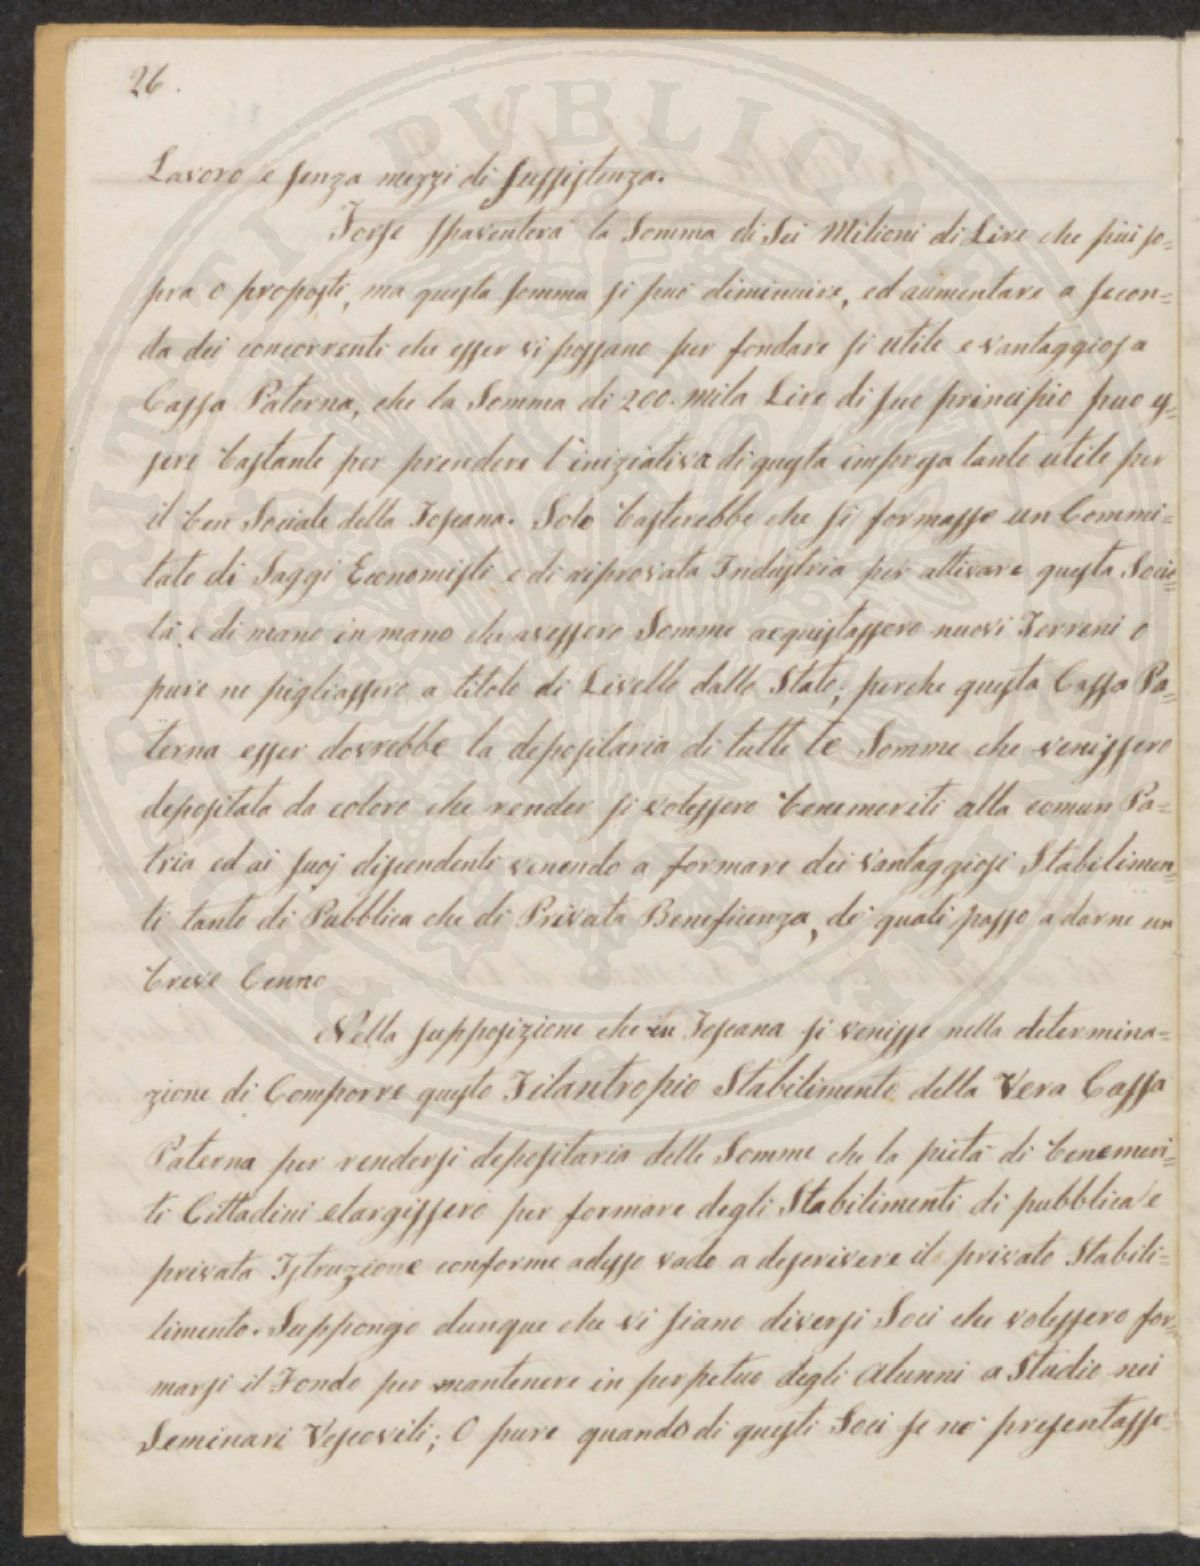 26.
Lavoro e senza mezzi di sussistenza.
Forse spaventerà la Somma di Sei Milioni di Lire che più so=
pra o proposti, ma questa somma si può diminuire, ed aumentare a secon=
da dei concorrenti che esser vi possano per fondare si utile e vantaggiosa
Cassa Paterna, che la Somma di 200. mila Lire di suo principio può es=
sere bastante per prendere l'iniziativa di questa impresa tanto utile per
il ben Sociale della Toscana. Solo basterebbe che si formasse un Commi=
tato di Saggi Economisti e di riprovata Industria per attivare questa Socie=
tà e di mano in mano che avessero Somme acquistassero nuovi Terreni o
pure ne pigliassero a titolo di Livello dallo Stato; perche questa Cassa Pa=
terna esser dovrebbe la depositaria di tutte le Somme che venissero
depositata da coloro che render si volessero benemeriti alla comun Pa=
tria ed ai suoj discendenti venendo a formare dei vantaggiosi Stabilimen=
ti tanto di Pubblica che di Privata Beneficenza, dei quali passo a darne un
breve Cenno
Nella supposizione che in Toscana si venisse nella determina=
zione di Comporre questo Filantropio Stabilimento della Vera Cassa
Paterna per rendersi depositaria delle Somme che la pietà di benemeri=
ti Cittadini elargissero per formare degli Stabilimenti di pubblica e
privata Istruzione conforme adesso vado a descrivere il privato Stabili=
limento. Suppongo dunque che vi siano diversi Soci che volessero for=
marsi il Fondo per mantenere in perpetuo degli Alunni a Studio nei
Seminari Vescovili; O pure quando di questi Soci se nè presentasse
PERITIA PUBLICAE UTILITATI